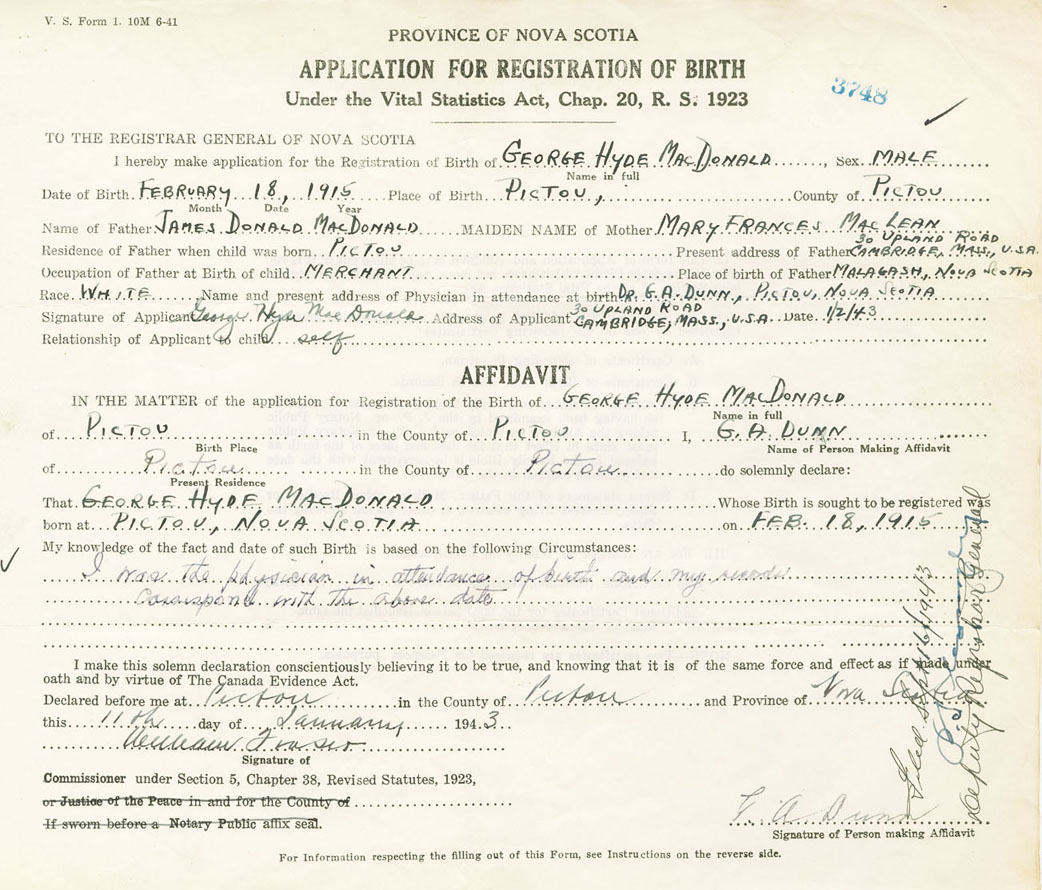 V. S. Form 1. 10M 6-41
PROVINCE OF NOVA SCOTIA
APPLICATION FOR REGISTRATION OF BIRTH
Under the Vital Statistics Act, Chap. 20, R. S. 1923
3748
TO THE REGISTRAR GENERAL OF NOVA SCOTIA
I hereby make application for the Registration of Birth of GEORGE HYDE MACDONALD, Sex MALE
Name in full
Date of Birth FEBRUARY 18, 1915 Place of Birth PICTOU, County of PICTOU
Month Date Year
Name of Father JAMES DONALD MACDONALD MAIDEN NAME of Mother MARY FRANCES MACLEAN
30 UPLAND ROAD
Residence of Father when child was born PICTOU Present address of Father CAMBRIDGE, MASS., U.S.A.
Occupation of Father at Birth of child MERCHANT Place of birth of Father MALAGASH, NOVA SCOTIA
Race WHITE Name and present address of Physician in attendance at birth DR. G.A. DUNN, PICTOU, NOVA SCOTIA
30 UPLAND ROAD
Signature of Applicant George Hyde MacDonald Address of Applicant CAMBRIDGE, MASS., U.S.A. Date 1/2/43
Relationship of Applicant to child self
AFFIDAVIT
IN THE MATTER of the application for Registration of the Birth of GEORGE HYDE MACDONALD
Name in full
of PICTOU in the County of PICTOU I, G. A. DUNN
Birth Place Name of Person Making Affidavit
of Pictou in the County of Pictou do solemnly declare:
Present Residence
That GEORGE HYDE MACDONALD Whose Birth is sought to be registered was
born at PICTOU, NOVA SCOTIA on FEB. 18, 1915
My knowledge of the fact and date of such Birth is based on the following Circumstances:
I was the physician in attendance of birth and my records
correspond with the above date
I make this solemn declaration conscientiously believing it to be true, and knowing that it is of the same force and effect as if made under
oath and by virtue of The Canada Evidence Act.
Declared before me at Pictou in the County of Pictou and Province of Nova Scotia
this 11th day of January 1943
William Fraser
Signature of
Commissioner under Section 5, Chapter 38, Revised Statutes, 1923,
or Justice of the Peace in and for the County of
If sworn before a Notary Public affix seal.
G. A. Dunn
Signature of Person making Affidavit
For Information respecting the filling out of this Form, see Instructions on the reverse side.
Filed Sept 16/1943
Deputy Registrar General